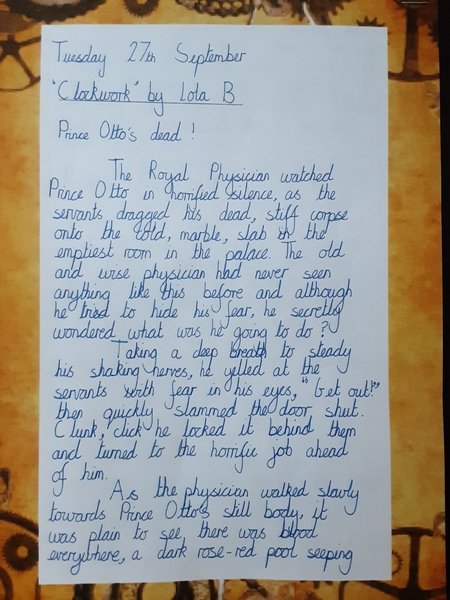 Tuesday 27th September
"Clockwork" by Lola B
Prince Otto's dead!
The Royal Physician watched
Prince Otto in horrified silence, as the
servants dragged his dead, stiff corpse
onto the cold, marble, slab in the
emptiest room in the palace. The old
and wise physician had never seen
anything like this before and although
he tried to hide his fear, he secretly
wondered what was he going to do?
Taking a deep breath to steady
his shaking nerves, he yelled at the
servants with fear in his eyes, "Get out!"
then quickly slammed the door shut.
Clunk, click he locked it behind them
and turned to the horrific job ahead
of him.
As the physician walked slowly
towards Prince Otto's still body, it
was plain to see, there was blood
everywhere, a dark rose-red pool seeping